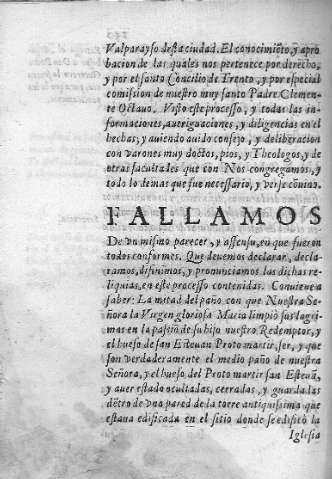 Valparayso desta ciudad. El conocimiẽto, y apro
bacion de las quales nos pertenece por derecho,
y por el santo Concilio de Trento, y por especial
comission de nuestro muy santo Padre Clemen-
te Octauo. Visto este processo, y todas las in-
formaciones, aueriguaciones, y diligencias en el
hechas; y auiendo auido consejo, y deliberacion
con varones muy doctos, pios, y Theologos, y de
otras facultades que con Nos congregamos, y
todo lo demas que fue necessario, y verse cõuino.
FALLAMOS
De vn mismo parecer, y assenso, en que fueron
todos conformes. Que deuemos declarar, decla-
ramos, difinimos, y pronunciamos las dichas re-
liquias, en este processo contenidas. Conuiene a
saber: La mitad del paño con que Nuestra Se-
ñora la Virgen gloriosa Maria limpiò sus lagri-
mas en la passiõ de su hijo nuestro Redemptor, y
el huesso de san Esteuan Proto martir, ser, y que
son verdaderamente el medio paño de nuestra
Señora, y el huesso del Proto martir san Esteuã,
y auer estado ocultadas, cerradas, y guardadas
dẽtro de vna pared de la torre antiquissima que
estaua edificada en el sitio donde se edificò la
Iglesia